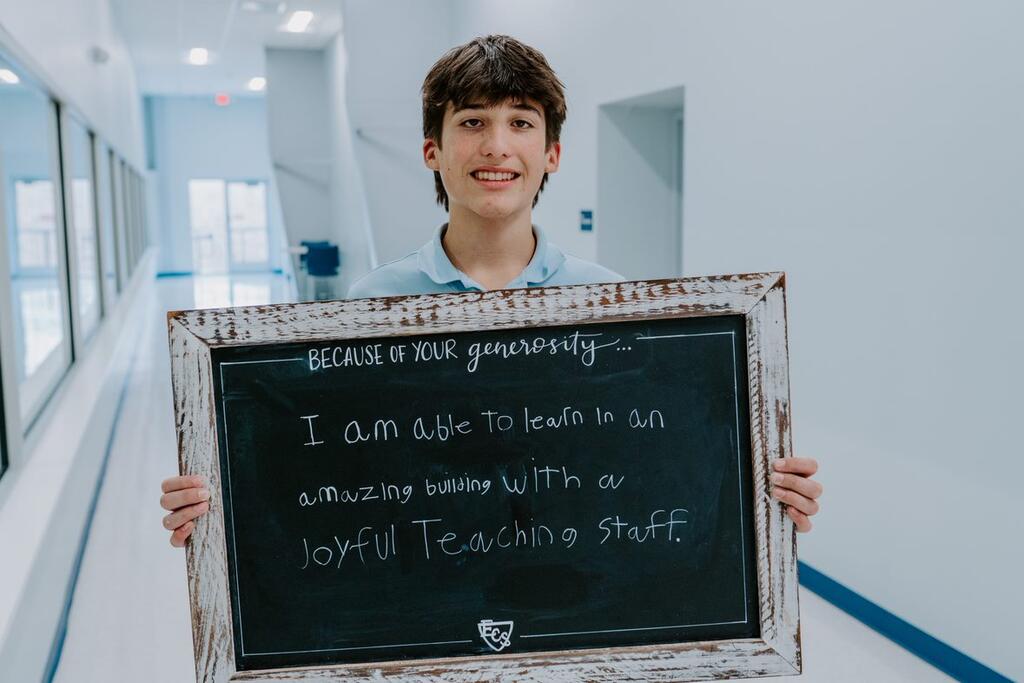 BECAUSE OF YOUR generosity...
I am able to learn In an
amazing building with a
Joyful Teaching staff.
ECS